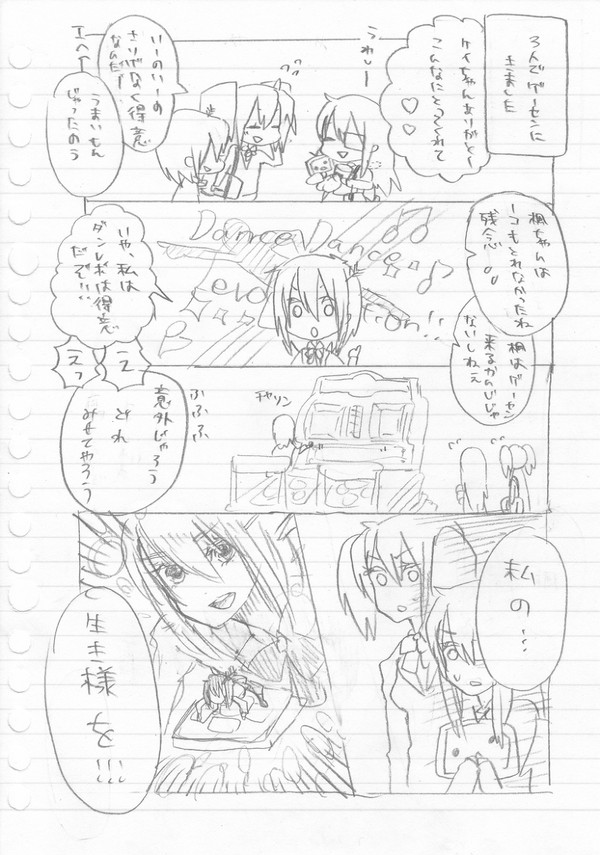 3人でゲーセンに
きました
ケイちゃんありがと〜
こんなにとってくれて
うれしー
いーのいーの
さりげなく得意
なんだー
うまいもん
じゃったのう
エヘー
楓ちゃんは
1コもとれなかったね
残念
楓はゲーセン
来るかんじじゃ
ないしねえ
Dance Dance
いや、私は
ダンレボは得意
だぞ!!
えっ
えっ
チャリン
ふふふ
意外じゃろう
どれ
みせてやろう
私の…
生き様を…!!